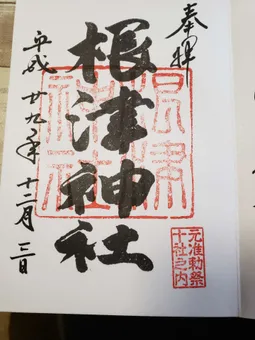 奉拝
根津神社
根津神社
元准勅祭
十社之内
平成廿九年十二月三日